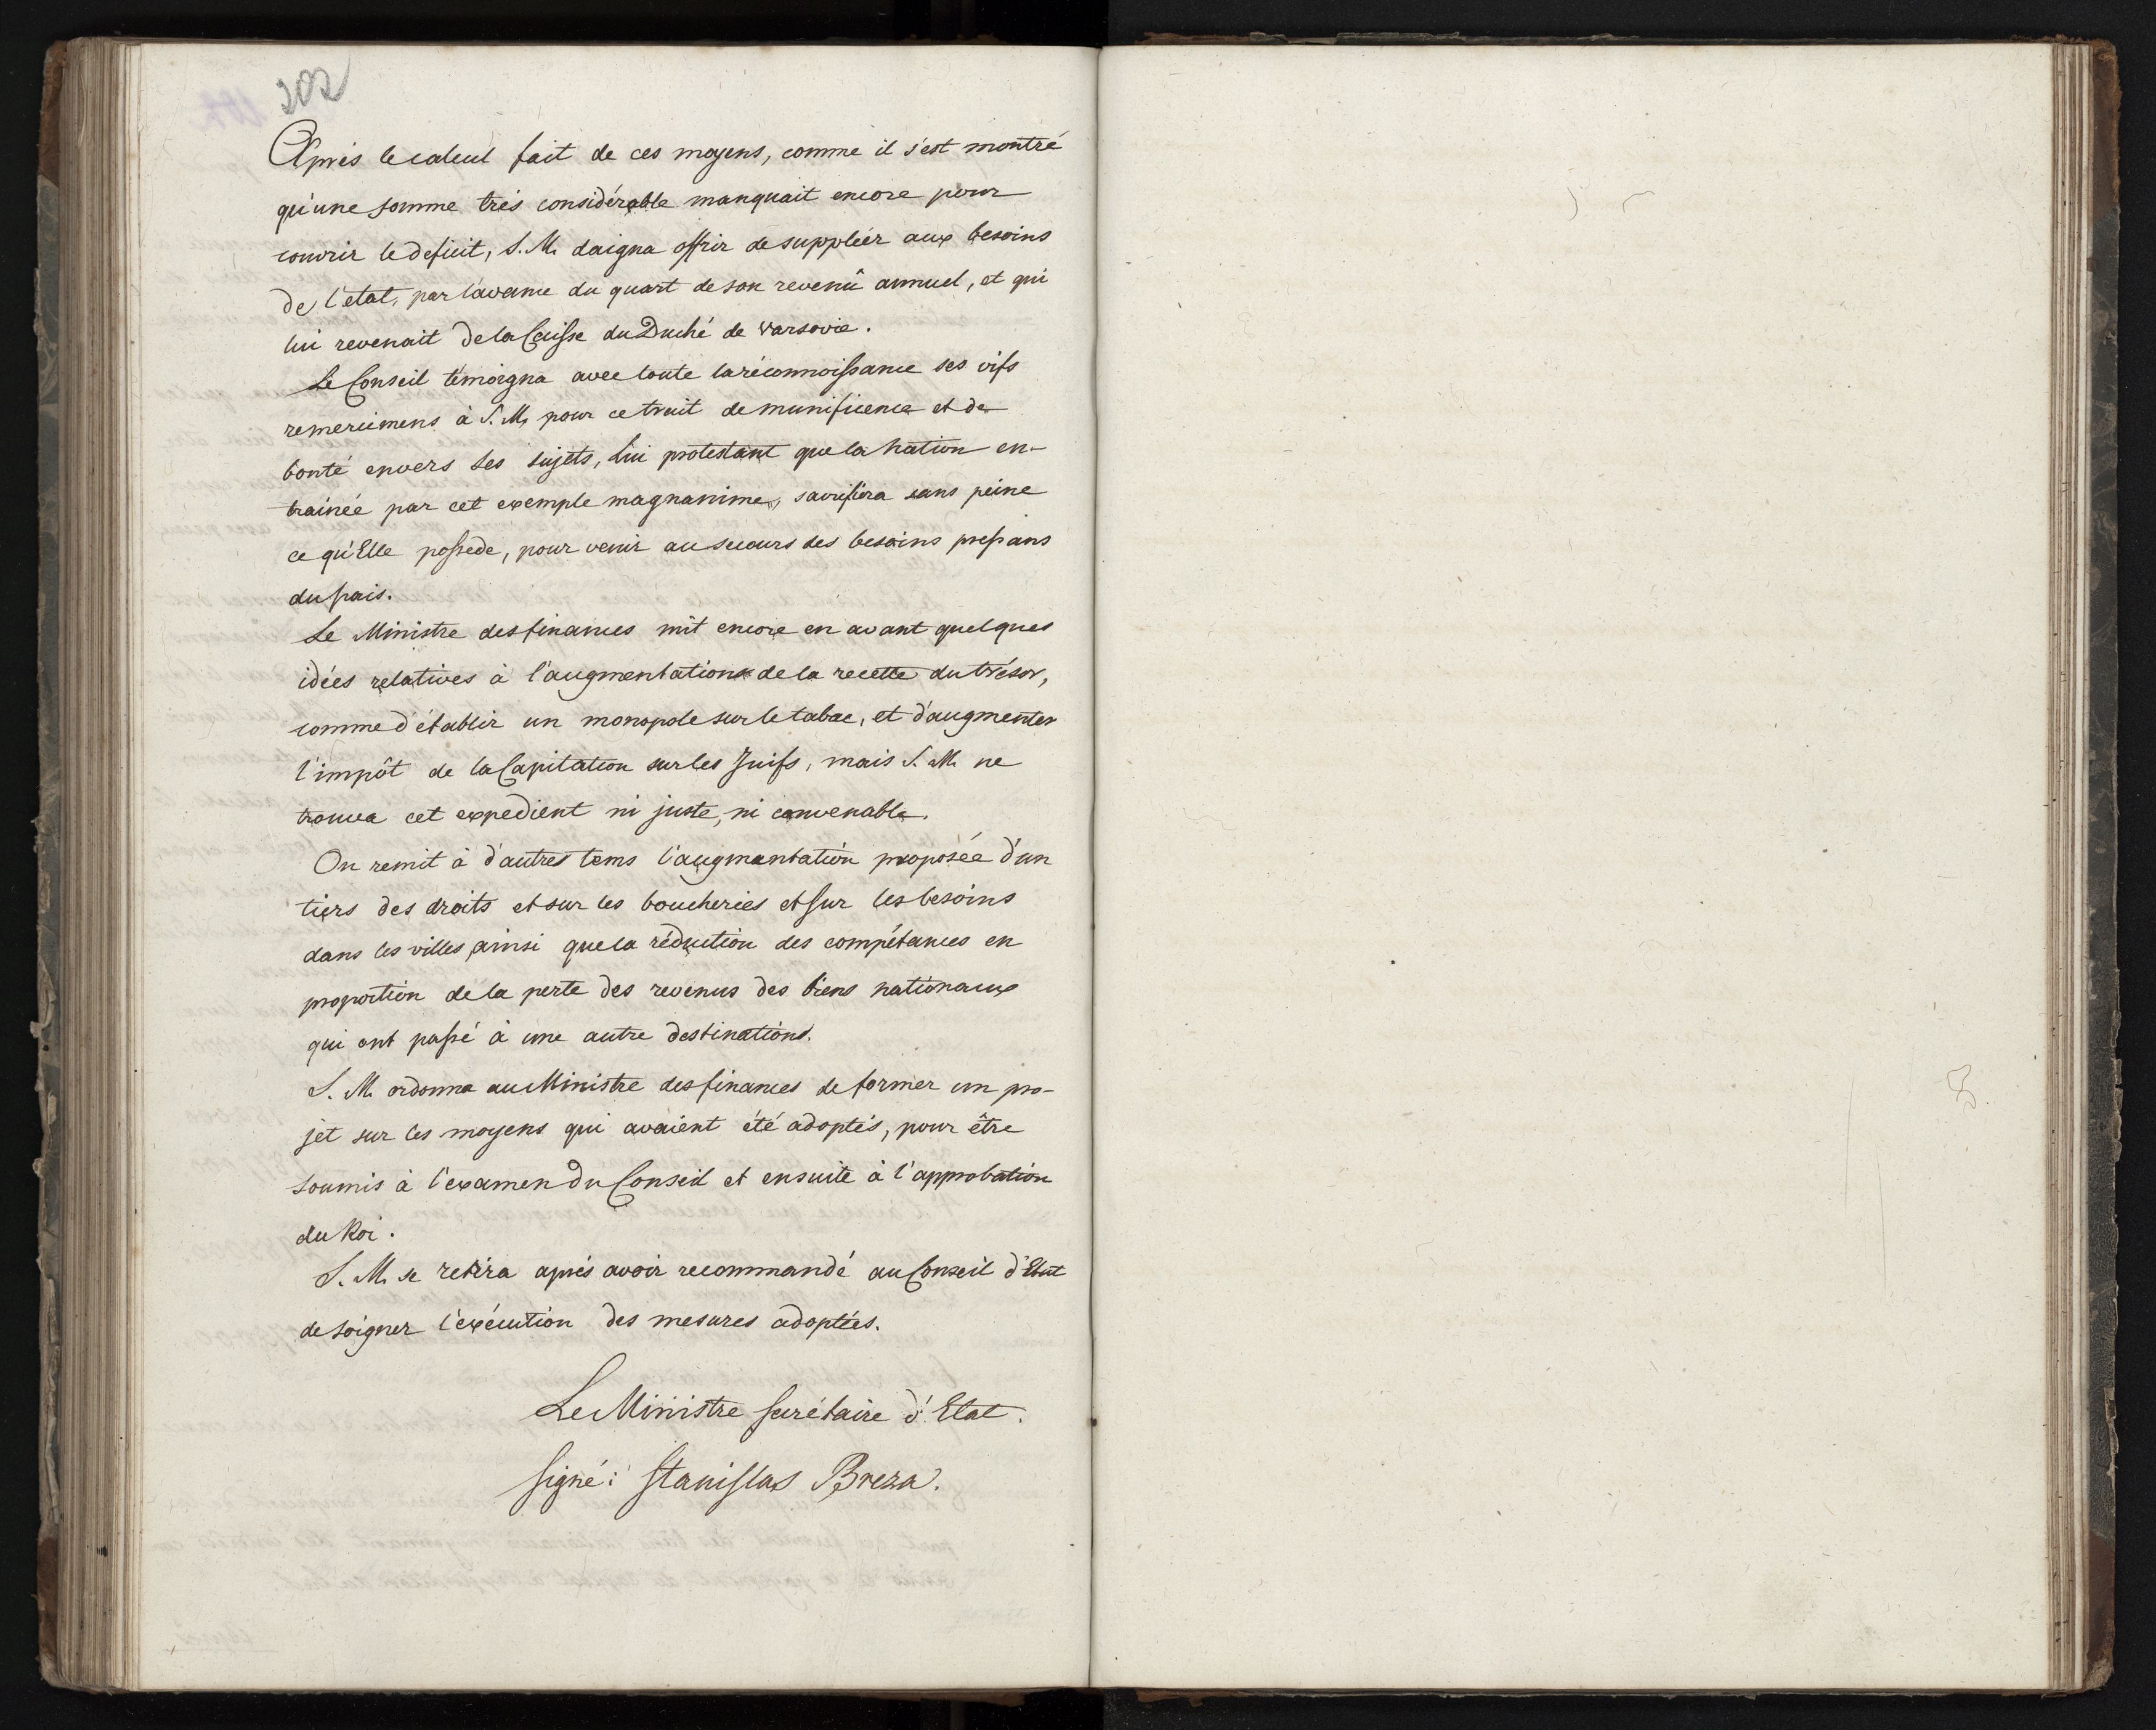 202
Après le calcul fait de ces moyens, comme il s'est montré
qu'une somme très considérable manquait encore pour
couvrir le deficit, S. M. daigna offrir de suppléer aux besoins
de l'etat, par l'avance du quart de son revenû annuel, et qui
lui revenait de la Caisse du Duché de Varsovie.
Le Conseil témoigna avec toute la réconnoissance ses vifs
remercimens à S. M. pour ce trait de munificence et de
bonté envers ses sujets, Lui protestant que la Nation en-
trainée par cet exemple magnanime, sacrifiera sans peine
ce qu'Elle possede, pour venir au secours des besoins pressans
du païs.
Le Ministre des finances mit encore en avant quelques
idées relatives à l'augmentation de la recette du trésor,
comme d'établir un monopole sur le tabac, et d'augmenter
l'impôt de la Capitation sur les Juifs, mais S. M. ne
trouva cet expedient ni juste, ni convenable.
On remit à d'autres tems l'augmentation proposée d'un
tiers des droits et sur les boucheries et sur les besoins
dans les villes, ainsi que la réduction des compétances en
proportion de la perte des revenus des biens nationaux
qui ont passé à une autre destinations.
S. M. ordonna au Ministre des finances de former un pro-
jet sur les moyens qui avaient été adoptés, pour être
soumis à l'examen du Conseil et ensuite à l'approbation
du Roi.
S. M. se retira après avoir recommandé au Conseil d'Etat
de soigner l'exécution des mesures adoptées.
Le Ministre Secrétaire d'Etat.
Signé: Stanislas Breza.